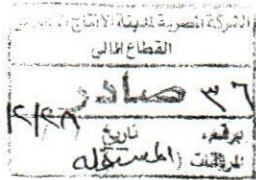 الشركة المصرية لمدينة الانتاج
القطاع المالى
٣٦ صادر
برقم،
تاريخ ٢/٢٨
المرفقات (المستقله